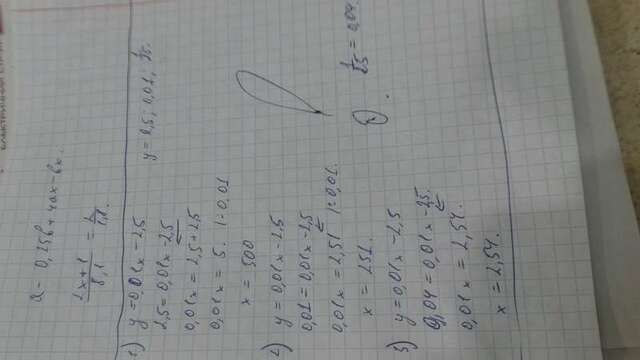 a - 0,25b + 4ax - bx.
1) y = 0,01x - 2,5
y = 2,5; 0,01; 1/25.
2,5 = 0,01x - 2,5
0,01x = 2,5 + 2,5
0,01x = 5. | : 0,01
x = 500
2) y = 0,01x - 2,5
0,01 = 0,01x - 2,5
0,01x = 2,51 | : 0,01.
x = 251.
3) y = 0,01x - 2,5
1/25 = 0,04.
0,04 = 0,01x - 2,5.
0,01x = 2,54.
x = 2,54.